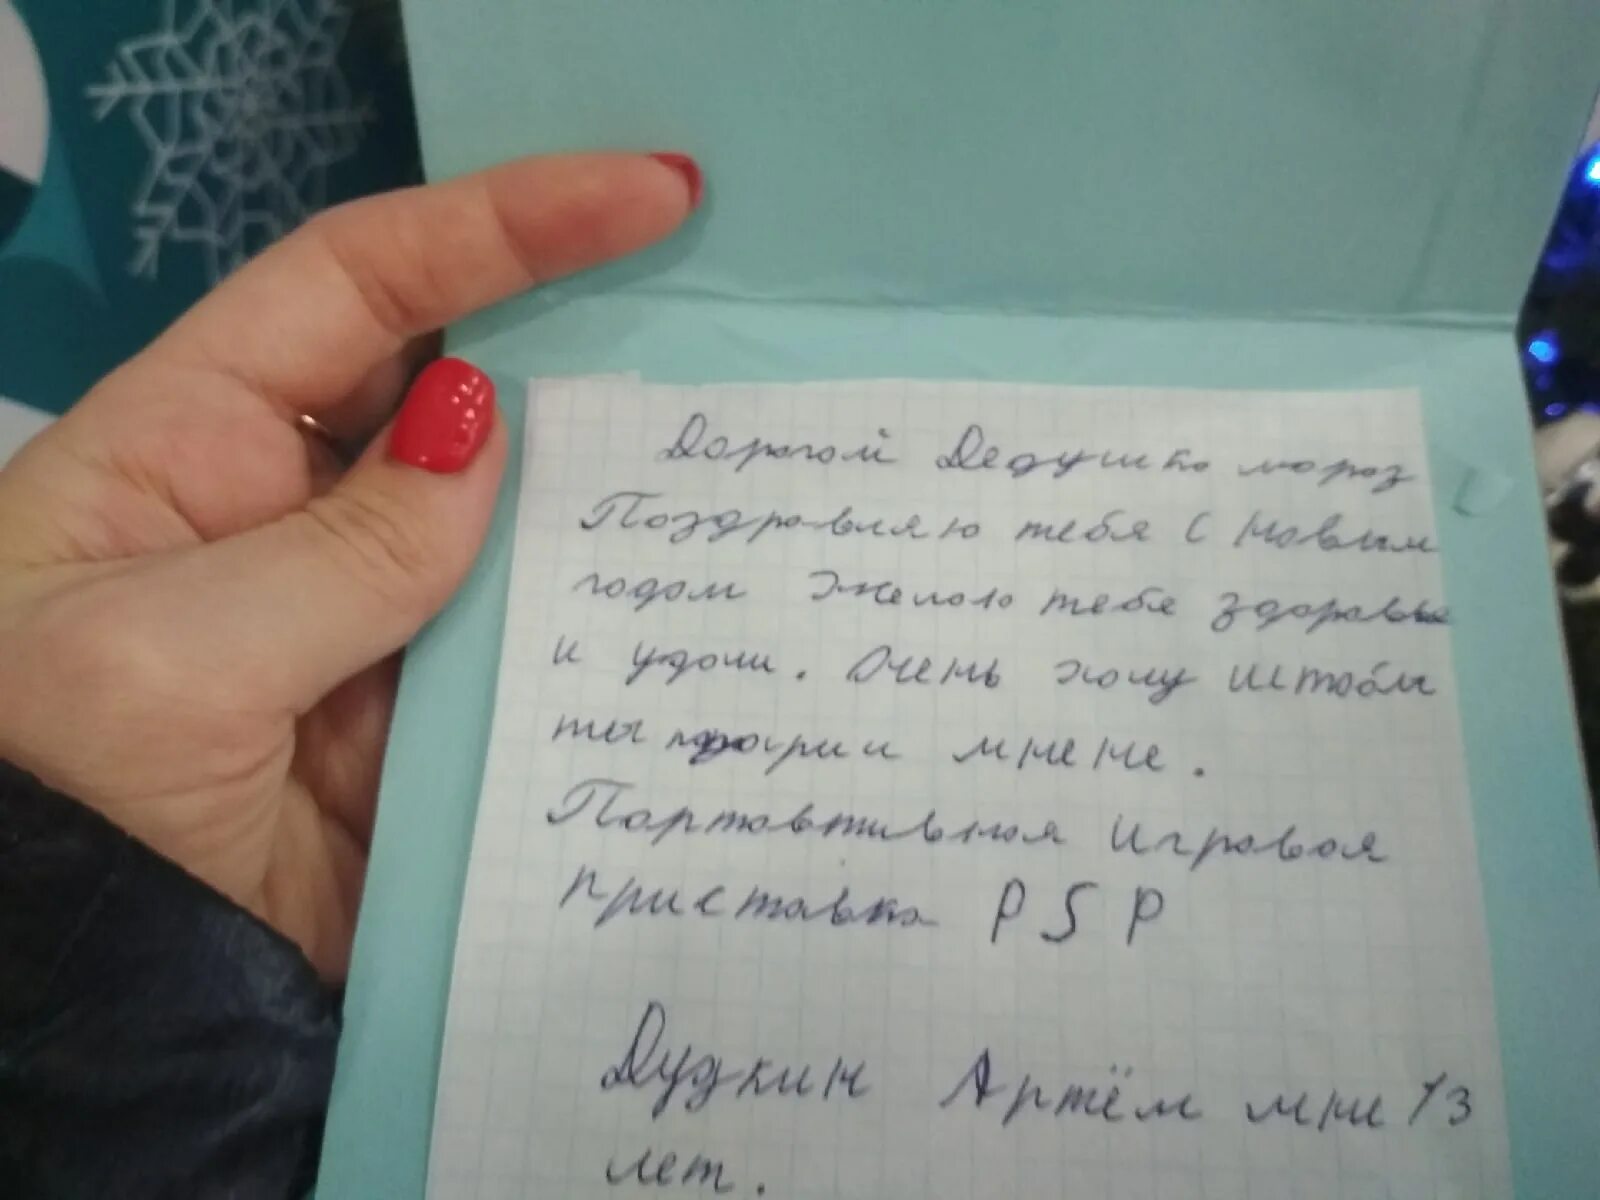 Дорогой Дедушка мороз
Поздравляю тебя с Новым
годом Желаю тебе здоровье
и удачи. Очень хочу штобы
ты мнене.
Портовтивная игровая
приставка PSP
Дудкин Артём мне 13
лет.